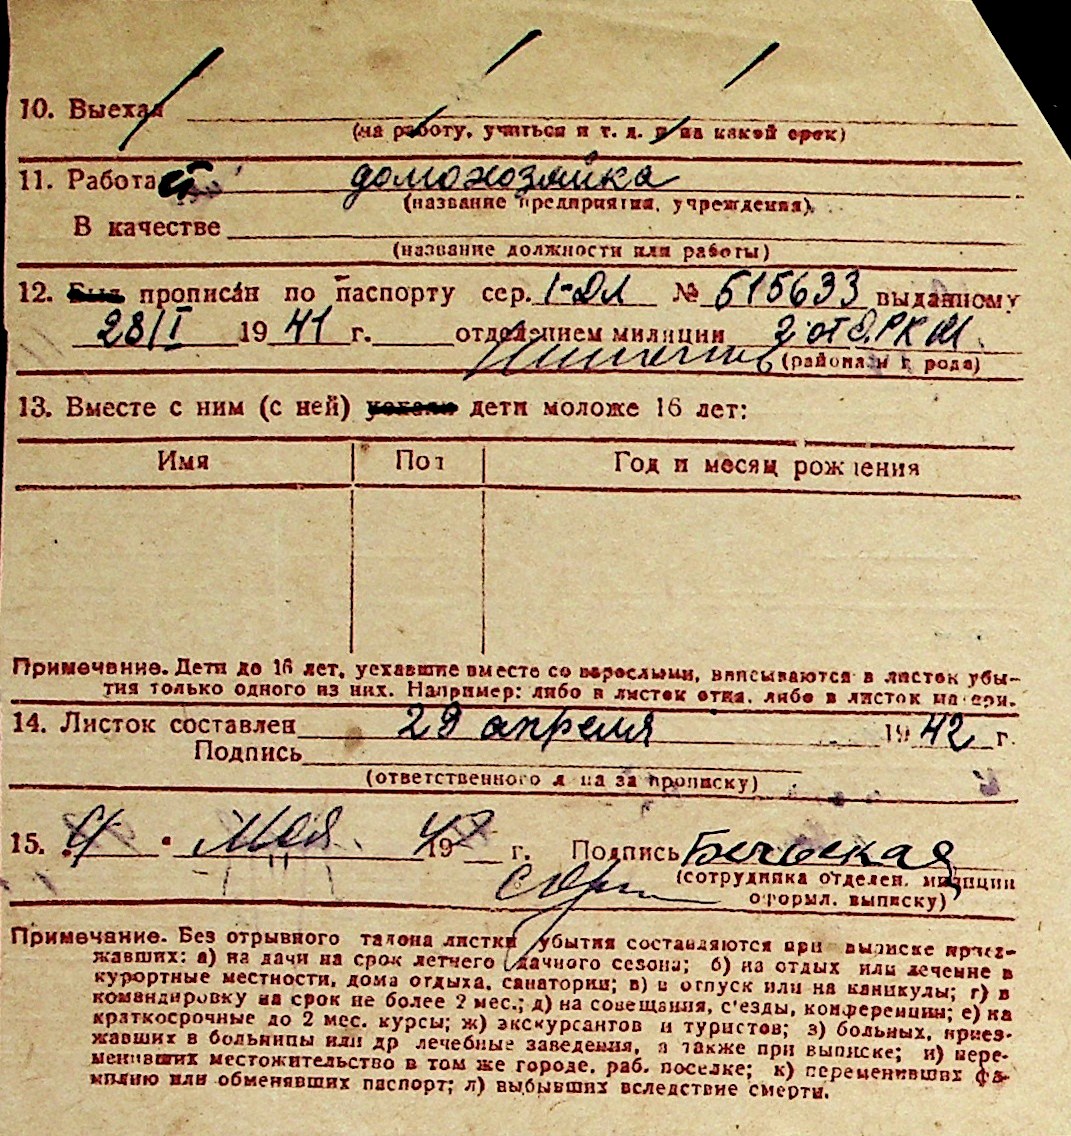 10. Выехал
(на работу, учиться и т. д. и на какой срок)
11. Работа домохозяйка
(название предприятия, учреждения)
В качестве
(название должности или работы)
12. Был прописан по паспорту сер. I-ДЛ № 515633 выданному
28/I 1941 г. отделением милиции 2 от Р.К.М.
(района и города)
13. Вместе с ним (с ней) уехали дети моложе 16 лет:
Имя Пол Год и месяц рождения
Примечание. Дети до 16 лет, уехавшие вместе со взрослыми, вписываются в листок убы-
тия только одного из них. Например: либо в листок отца, либо в листок матери.
14. Листок составлен 29 апреля 1942 г.
Подпись
(ответственного лица за прописку)
15. 4 Мая 1942 г. Подпись
(сотрудника отделен. милиции
оформл. выписку)
Примечание. Без отрывного талона листки убытия составляются при выписке приез-
жавших: а) на дачи на срок летнего дачного сезона; б) на отдых или лечение в
курортные местности, дома отдыха, санатории; в) в отпуск или на каникулы; г) в
командировку на срок не более 2 мес.; д) на совещания, с'езды, конференции; е) на
краткосрочные до 2 мес. курсы; ж) экскурсантов и туристов; з) больных, приез-
жавших в больницы или др лечебные заведения, а также при выписке; и) пере-
менивших местожительство в том же городе, раб. поселке; к) переменивших фа-
милию или обменявших паспорт; л) выбывших вследствие смерти.